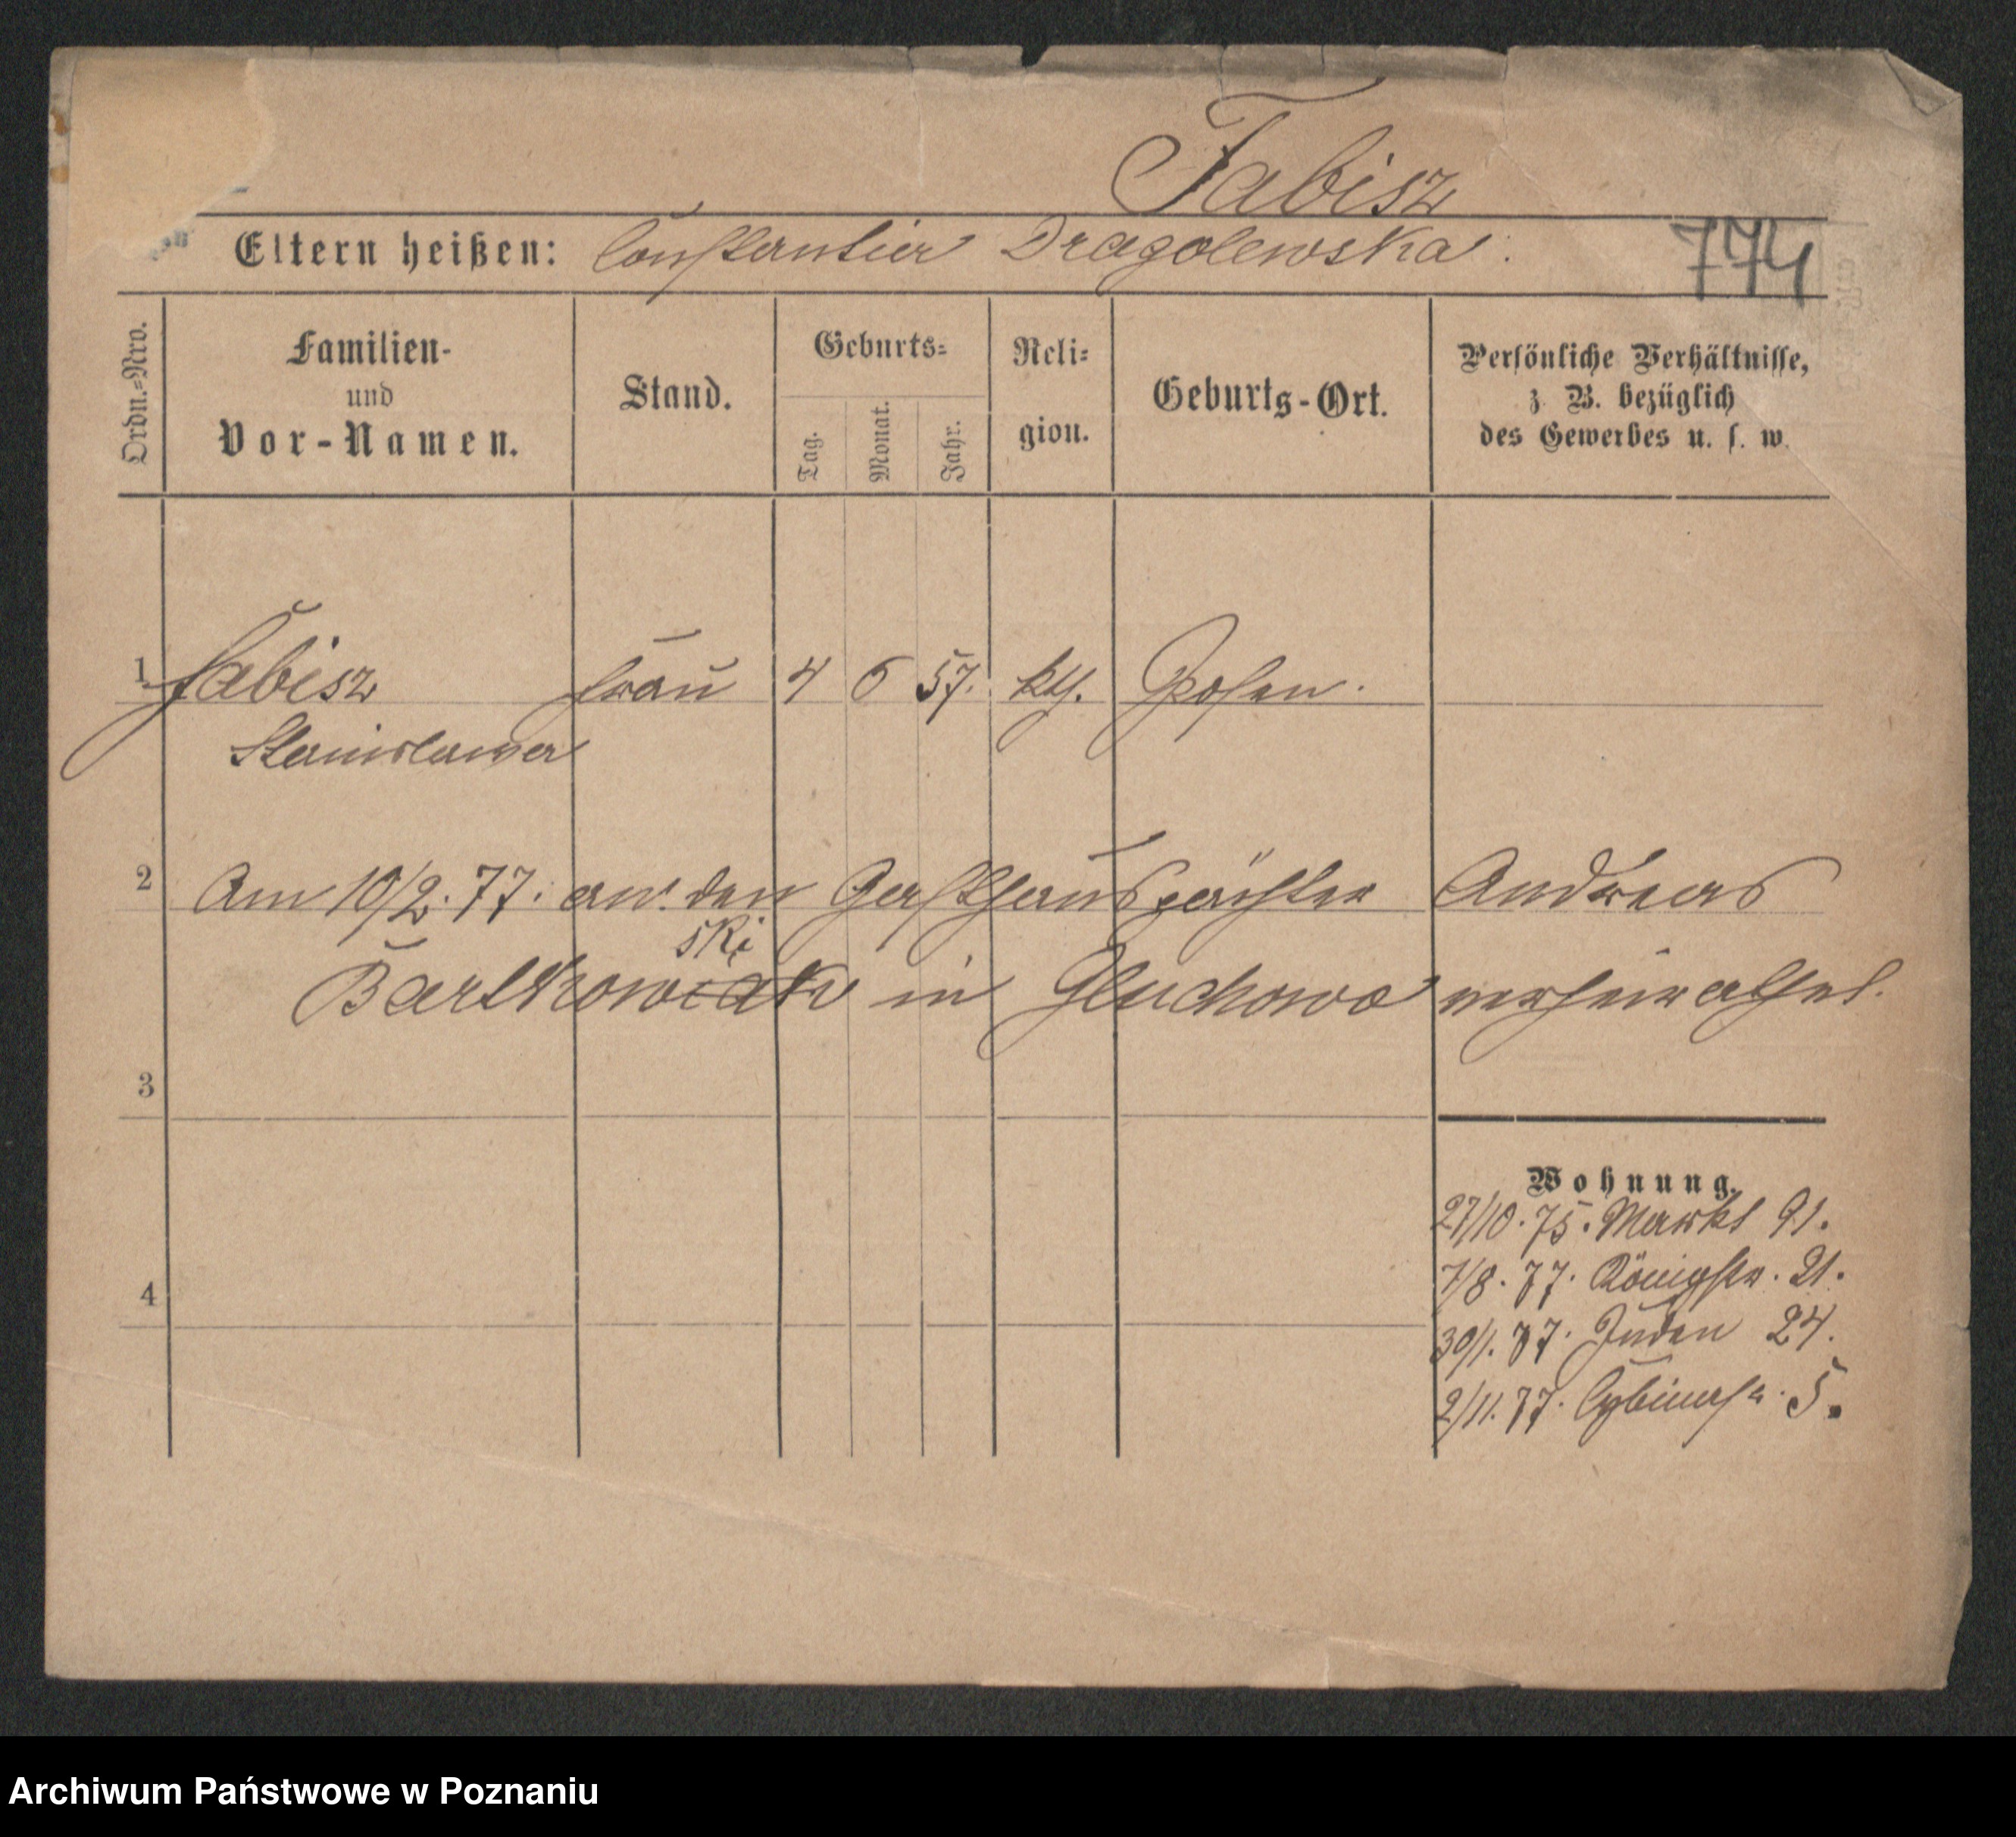 Fabisz
Eltern heißen: Constantia Dragolewska.
774
Ordn.=Nro.
Familien-
und
Vor-Namen.
Stand.
Geburts=
Tag.
Monat.
Jahr.
Reli=
gion.
Geburts-Ort.
Persönliche Verhältnisse,
z. B. bezüglich
des Gewerbes u. s. w.
1 Fabisz Frau 4 6 57. kth. Posen.
Stanislawa
2 Am 10/2. 77. an den Gasthauspächter Andreas
ski
Bartkowiak in Gluchowo verheirathet.
3
4
Wohnung.
27/10. 75. Markt 91.
7/8. 77. Königstr. 21.
30/1. 77. Juden 24.
2/11. 77. Cybinastr. 5.
Archiwum Państwowe w Poznaniu